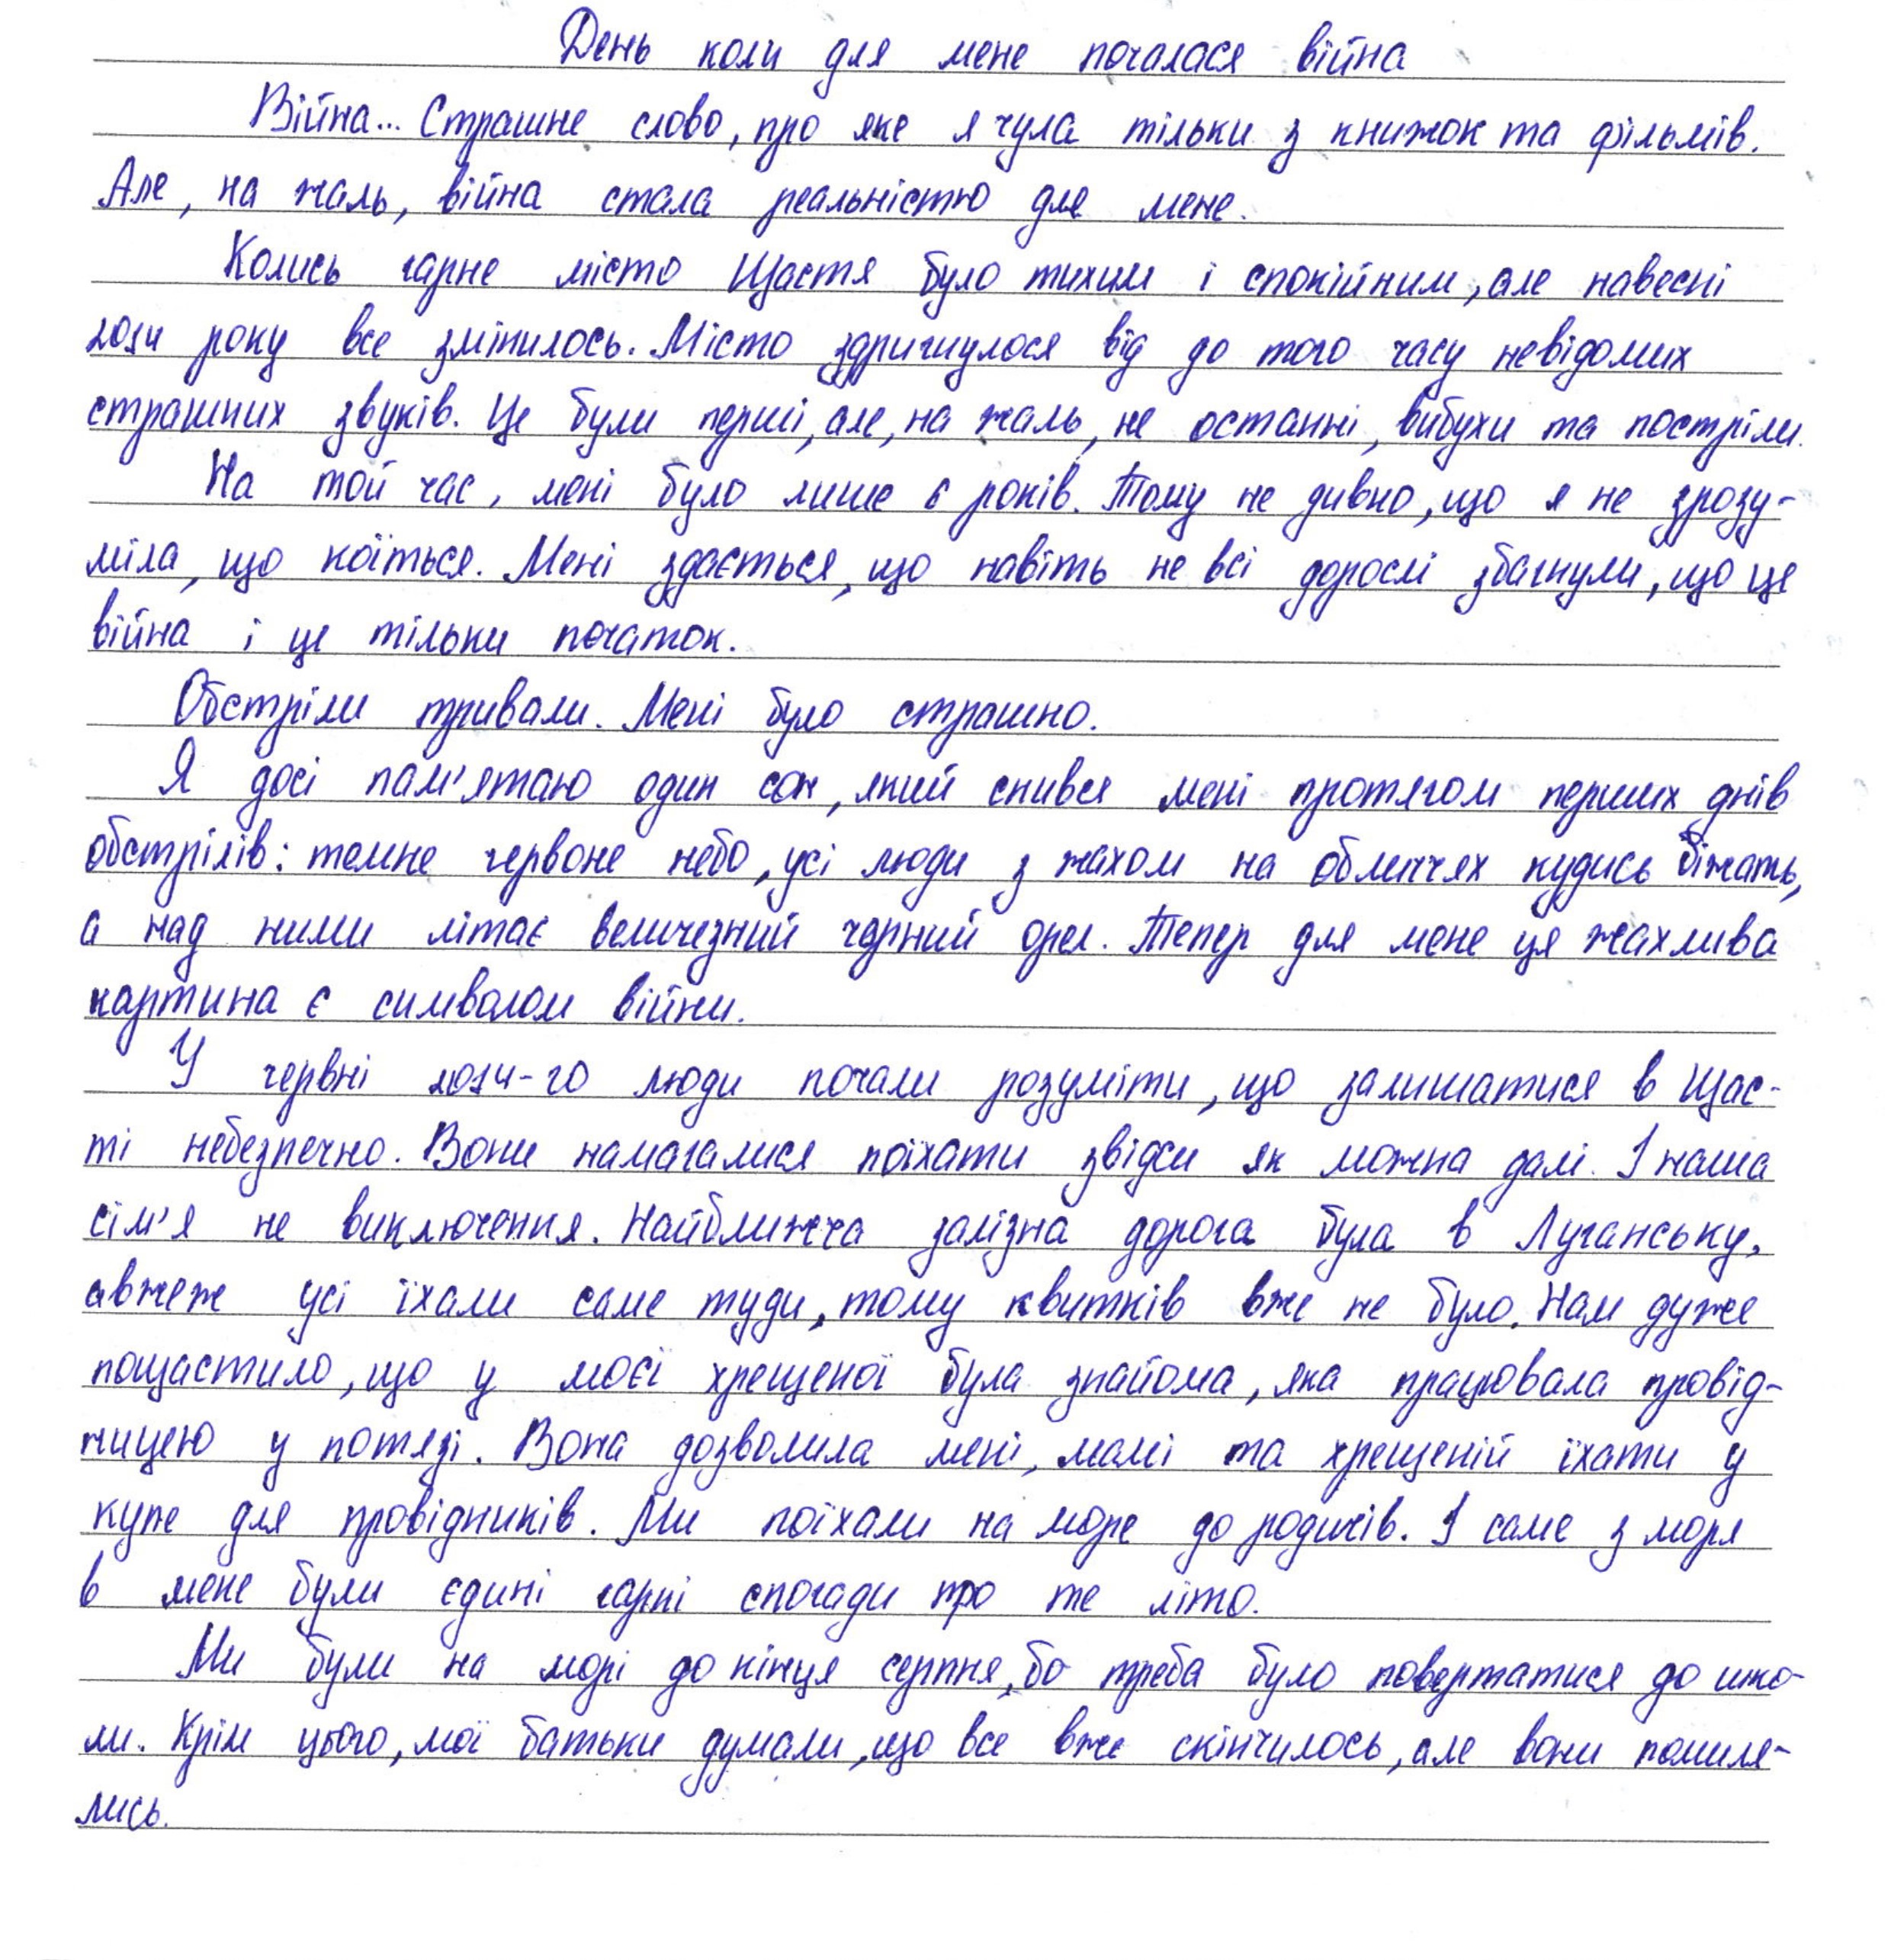 День коли для мене почалася війна
Війна... Страшне слово, про яке я чула тільки з книжок та фільмів.
Але, на жаль, війна стала реальністю для мене.
Колись гарне місто Щастя було тихим і спокійним, але навесні
2014 року все змінилось. Місто здригнулося від до того часу невідомих
страшних звуків. Це були перші, але, на жаль, не останні, вибухи та постріли.
На той час, мені було лише 6 років. Тому не дивно, що я не зрозу-
міла, що коїться. Мені здається, що навіть не всі дорослі збагнули, що це
війна і це тільки початок.
Обстріли тривали. Мені було страшно.
Я досі пам'ятаю один сон, який снився мені протягом перших днів
обстрілів: темне червоне небо, усі люди з жахом на обличчях кудись біжать,
а над ними літає величезний чорний орел. Тепер для мене ця жахлива
картина є символом війни.
У червні 2014-го люди почали розуміти, що залишатися в Щас-
ті небезпечно. Вони намагалися поїхати звідси як можна далі. І наша
сім'я не виключення. Найближча залізна дорога була в Луганську,
авжеж усі їхали саме туди, тому квитків вже не було. Нам дуже
пощастило, що у моєї хрещеної була знайома, яка працювала провід-
ницею у потязі. Вона дозволила мені, мамі та хрещеній їхати у
купе для провідників. Ми поїхали на море до родичів. І саме з моря
в мене були єдині гарні спогади про те літо.
Ми були на морі до кінця серпня, бо треба було повертатися до шко-
ли. Крім цього, мої батьки думали, що все вже скінчилось, але вони помиля-
лись.